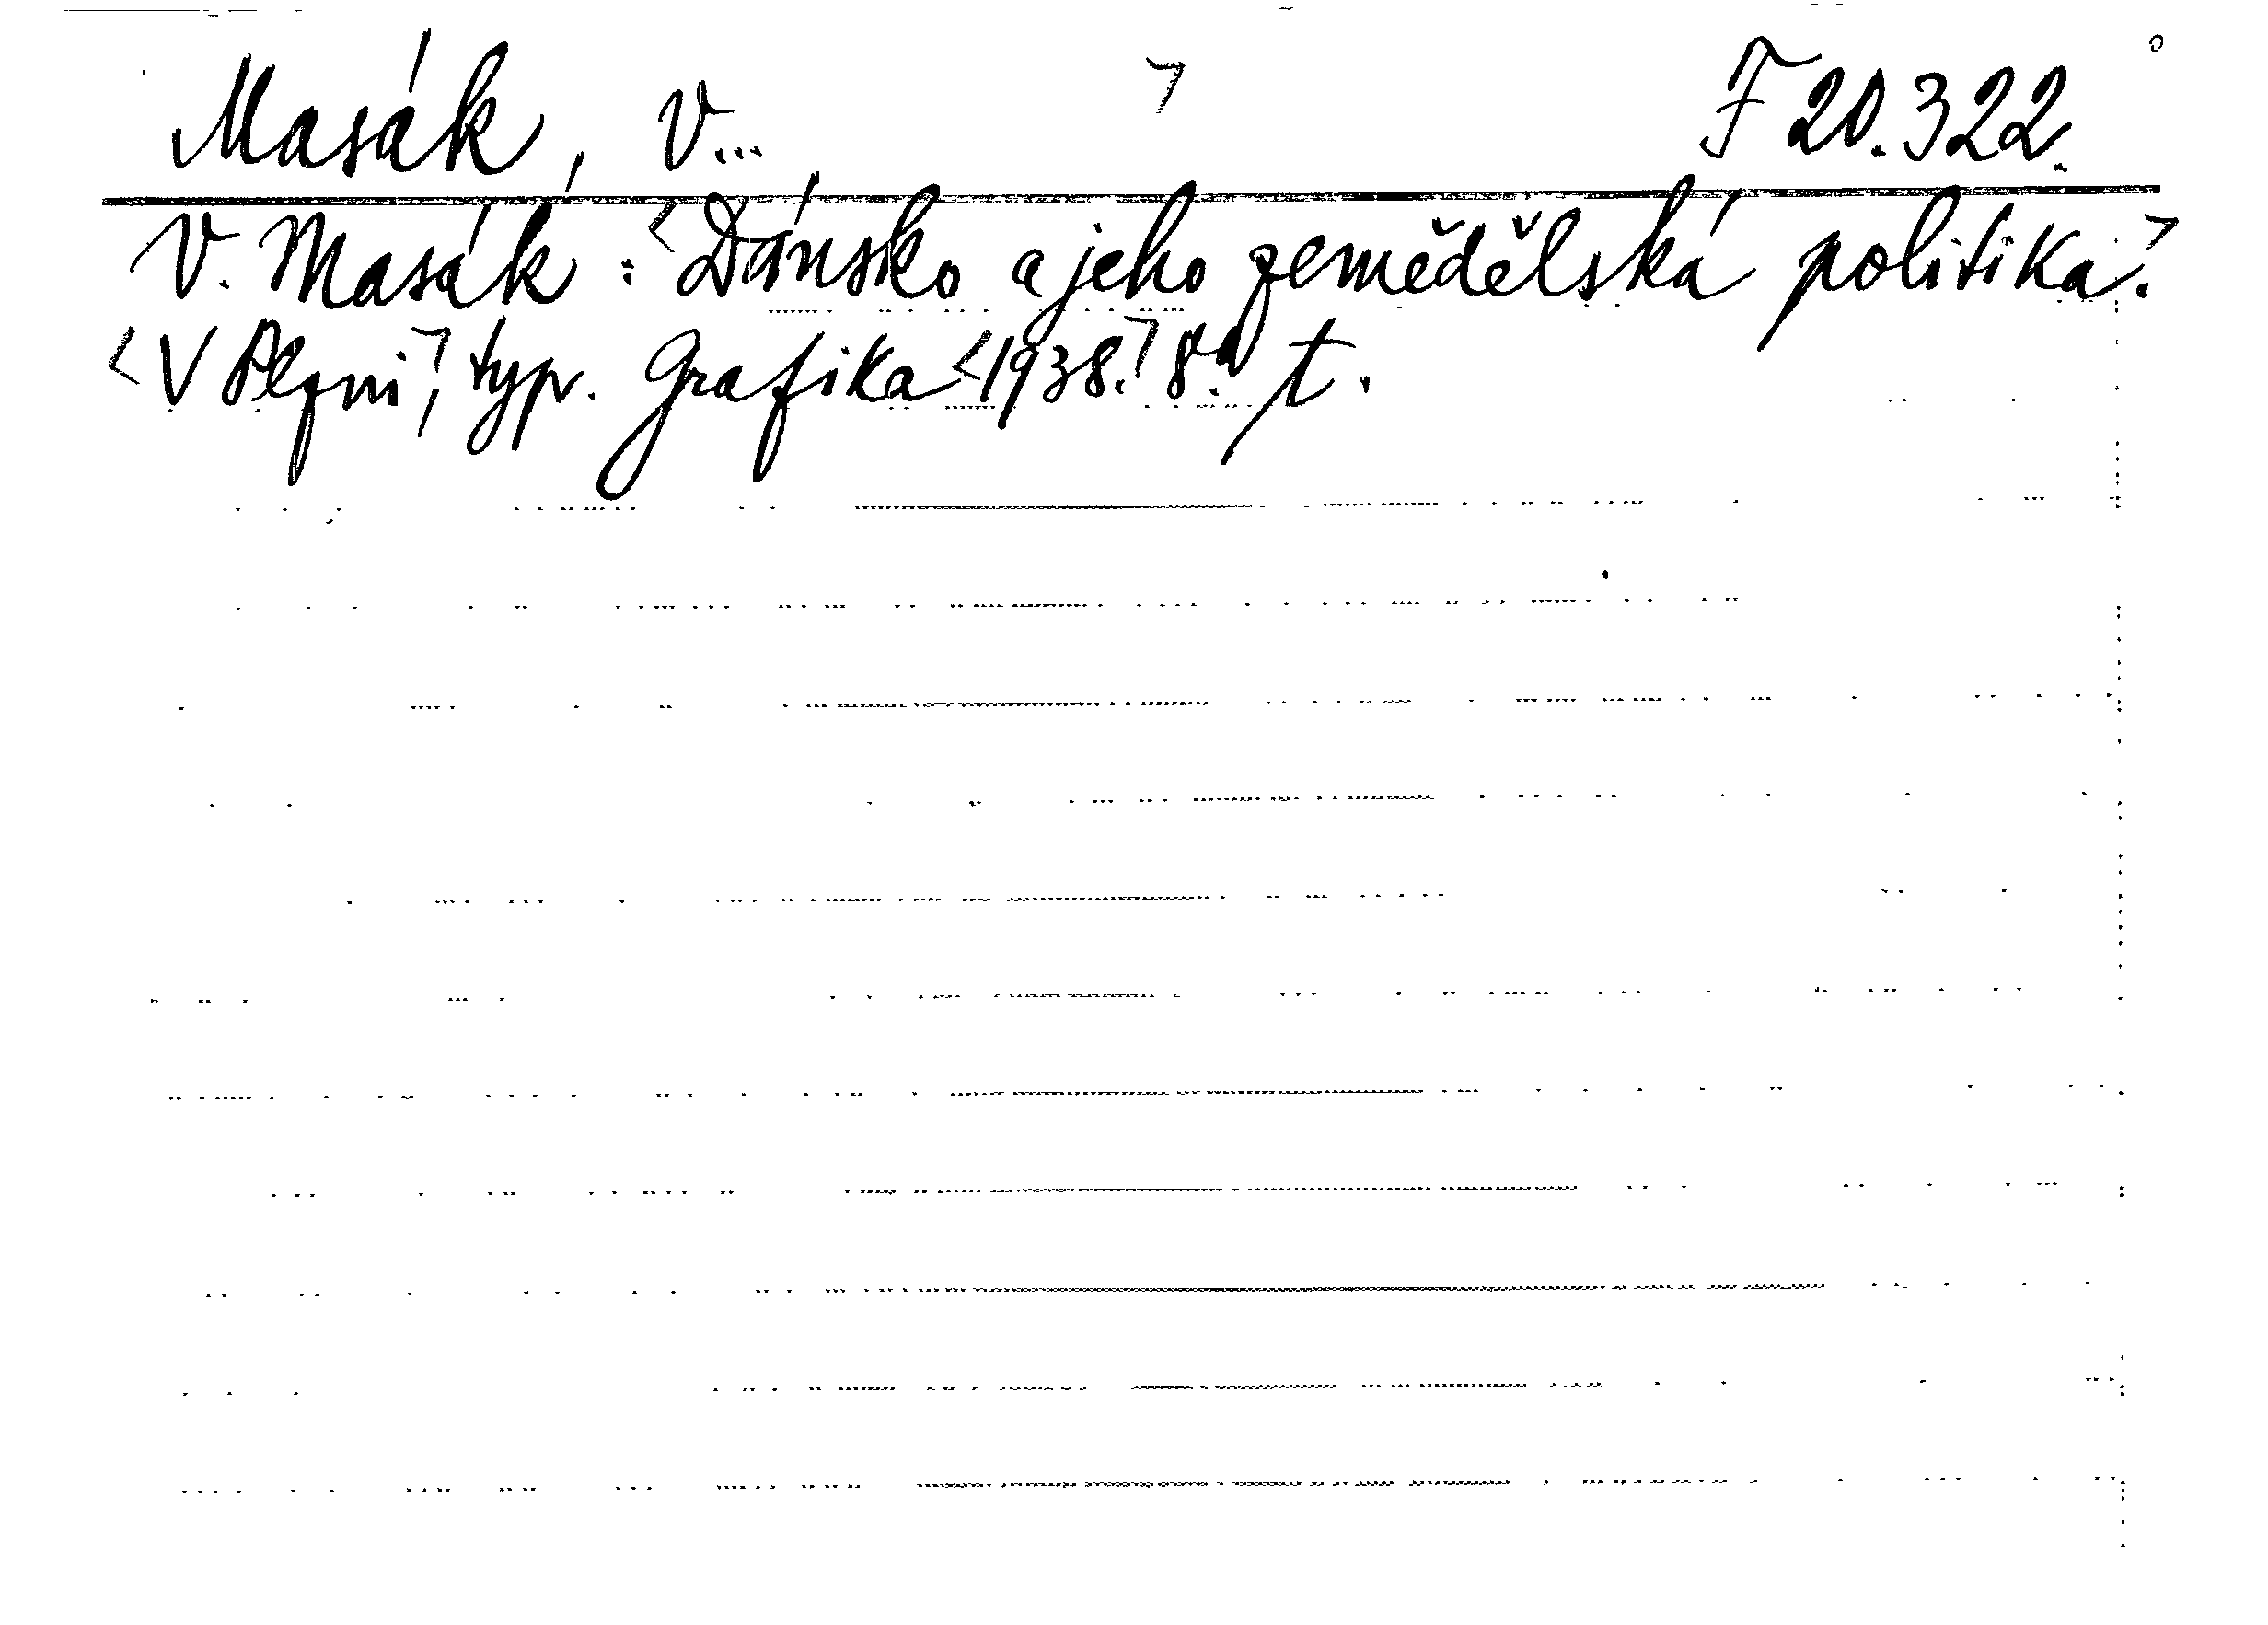 Masák, V... F 20.322.
V. Masák: <Dánsko a jeho zemědělská politika.>
<V Plzni>, typ. Grafika <1938.> 8.° t.